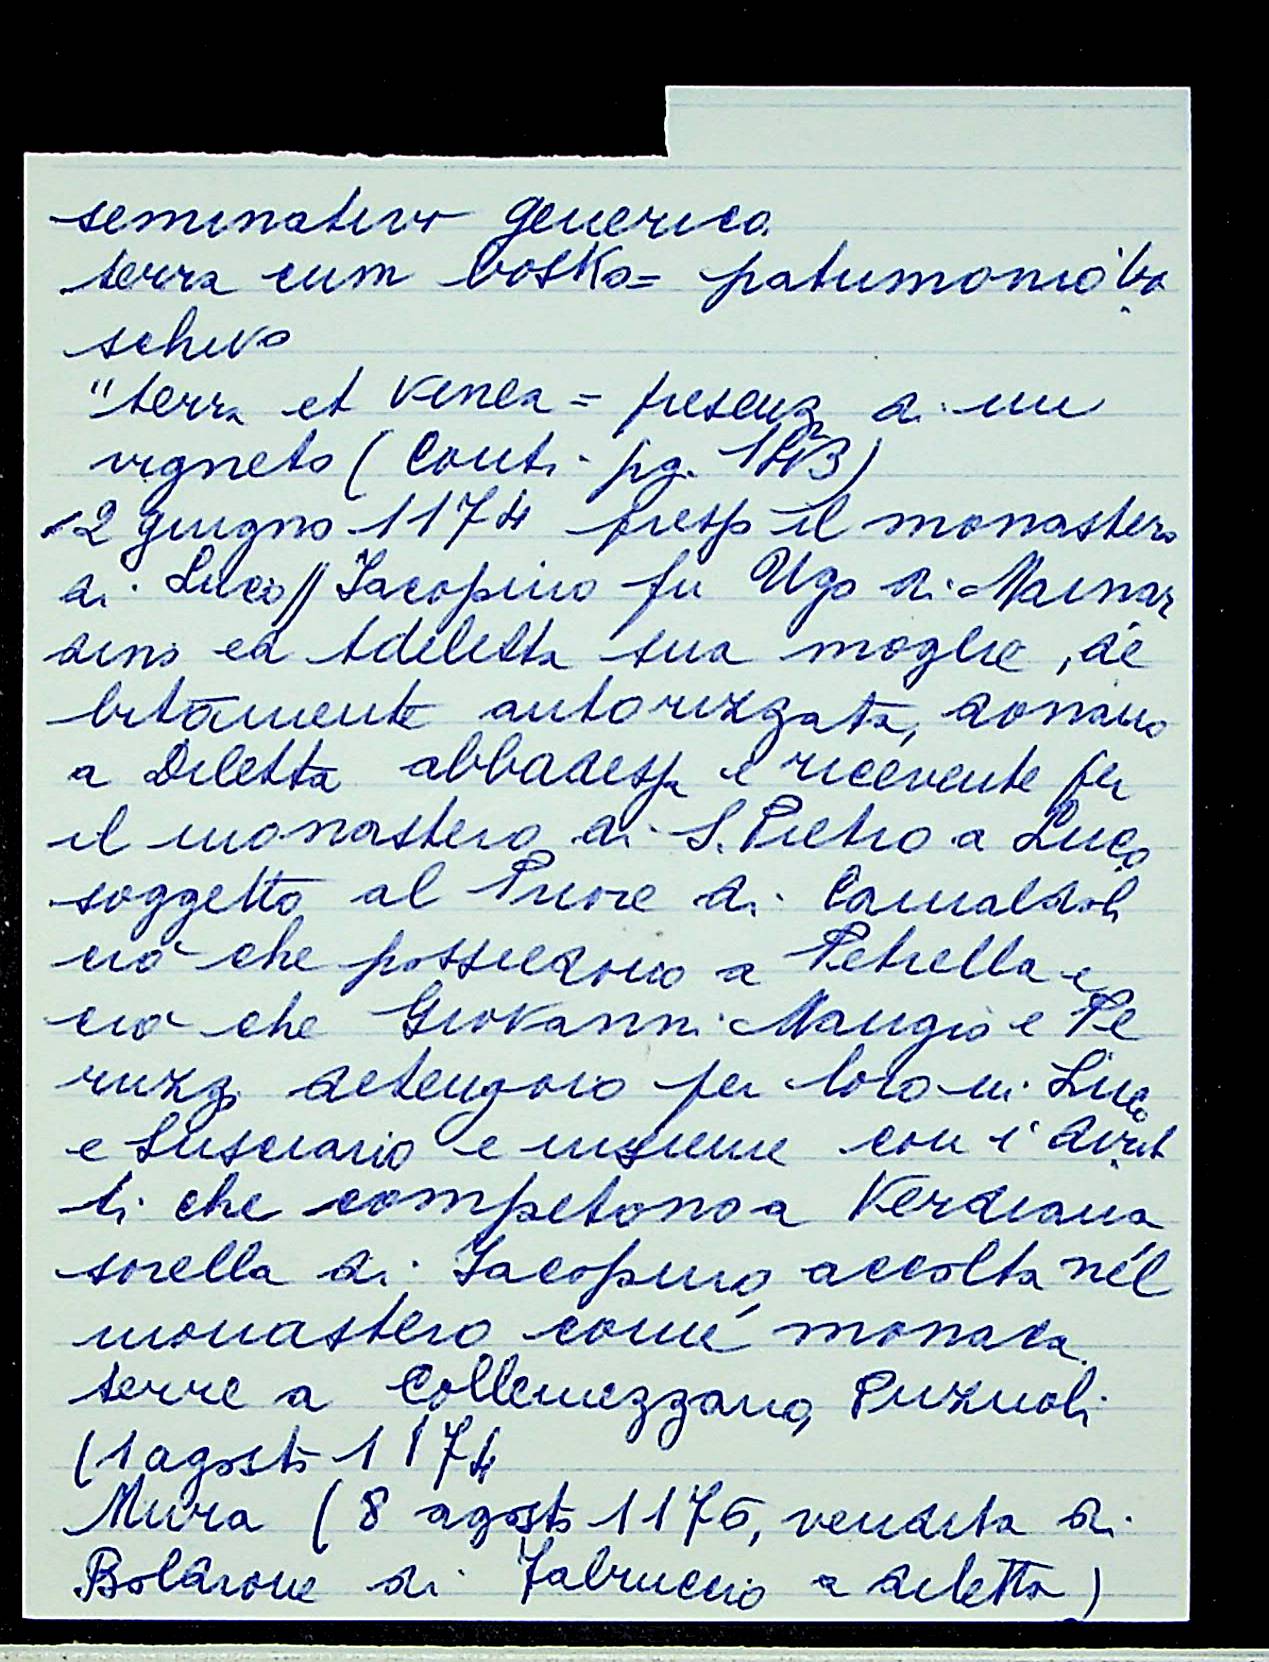 seminativo generico
terra cum bosko = patrimonio bo
schivo
"terra et vinea = presenza di un
vigneto (Conti pg. 143)
2 giugno 1174 presso il monastero
di Luco // Iacopino fu Ugo di Mainar
dino ed Adeletta sua moglie, de
bitamente autorizzata, donano
a Diletta abbadessa e ricevente per
il monastero di S. Pietro a Luco
soggetto al Priore di Camaldoli
ciò che possiedono a Petrella e
ciò che Giovanni Maugio e Pe
ruzzo detengono per loro in Luco
e Lusciano e insieme con i dirit
ti che competono a Verdiana
sorella di Iacopino, accolta nel
monastero come monaca.
terre a Collemezzano, Puznoli
(1 agosto 1174
Mura (8 agosto 1176, vendita di
Boldrone di Fabruccio a diletta)